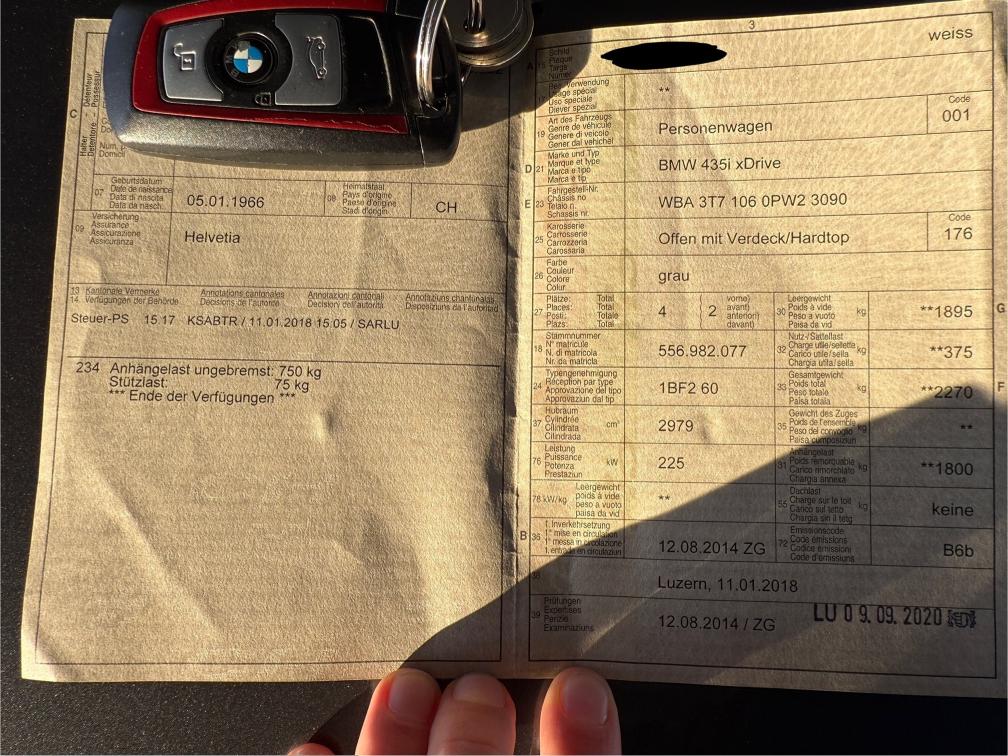 BMW
C
Halter
Détenteur
Detentore
Possessur
Num, p
Domicil
07
Geburtsdatum
Date de naissance
Data di nascita
Data da nasch.
05.01.1966
08
Heimatstaat
Pays d'origine
Paese d'origine
Stadi d'origin
CH
09
Versicherung
Assurance
Assicurazione
Assicuranza
Helvetia
13 Kantonale Vermerke Annotations cantonales Annotazioni cantonali Annotaziuns chantunalas
14 Verfügungen der Behörde Décisions de l'autorité Decisioni dell'autorità Disposiziuns da l'autoritad
Steuer-PS 15 17 KSABTR / 11.01.2018 15:05 / SARLU
234 Anhängelast ungebremst: 750 kg
Stützlast: 75 kg
*** Ende der Verfügungen ***
3
A
15
Schild
Plaque
Targa
Numer
weiss
Bes. Verwendung
Usage spécial
Uso speciale
Diever spezial
**
19
Art des Fahrzeugs
Genre de véhicule
Genere di veicolo
Gener dal vehichel
Personenwagen
Code
001
D
21
Marke und Typ
Marque et type
Marca e tipo
Marca e tip
BMW 435i xDrive
E
23
Fahrgestell-Nr.
Châssis no
Telaio n.
Schassis nr.
WBA 3T7 106 0PW2 3090
25
Karosserie
Carrosserie
Carrozzeria
Carossaria
Offen mit Verdeck/Hardtop
Code
176
26
Farbe
Couleur
Colore
Colur
grau
27
Plätze: Total
Places: Total
Posti: Totale
Plazs: Total
4
2
vorne)
avant)
anteriori)
davant)
30
Leergewicht
Poids à vide
Peso a vuoto
Paisa da vid
kg
**1895
G
18
Stammnummer
N° matricule
N. di matricola
Nr. da matricla
556.982.077
32
Nutz-/Sattellast
Charge utile/sellette
Carico utile/sella
Chargia utila/sella
kg
**375
24
Typengenehmigung
Réception par type
Approvazione del tipo
Approvaziun dal tip
1BF2 60
33
Gesamtgewicht
Poids total
Peso totale
Paisa totala
kg
**2270
F
37
Hubraum
Cylindrée
Cilindrata
Cilindrada
cm³
2979
35
Gewicht des Zuges
Poids de l'ensemble
Peso del convoglio
Paisa cumposiziun
kg
**
76
Leistung
Puissance
Potenza
Prestaziun
kW
225
31
Anhängelast
Poids remorquable
Carico rimorchiato
Chargia annexa
kg
**1800
78 kW/kg
Leergewicht
poids à vide
peso a vuoto
paisa da vid
**
55
Dachlast
Charge sur le toit
Carico sul tetto
Chargia sin il tetg
kg
keine
B
36
1. Inverkehrsetzung
1re mise en circulation
1a messa in circolazione
1. entrada en circulaziun
12.08.2014 ZG
72
Emissionscode
Code émissions
Codice emissioni
Code d'emissiuns
B6b
38
Luzern, 11.01.2018
39
Prüfungen
Expertises
Perizie
Examinaziuns
12.08.2014 / ZG
LU 09.09.2020